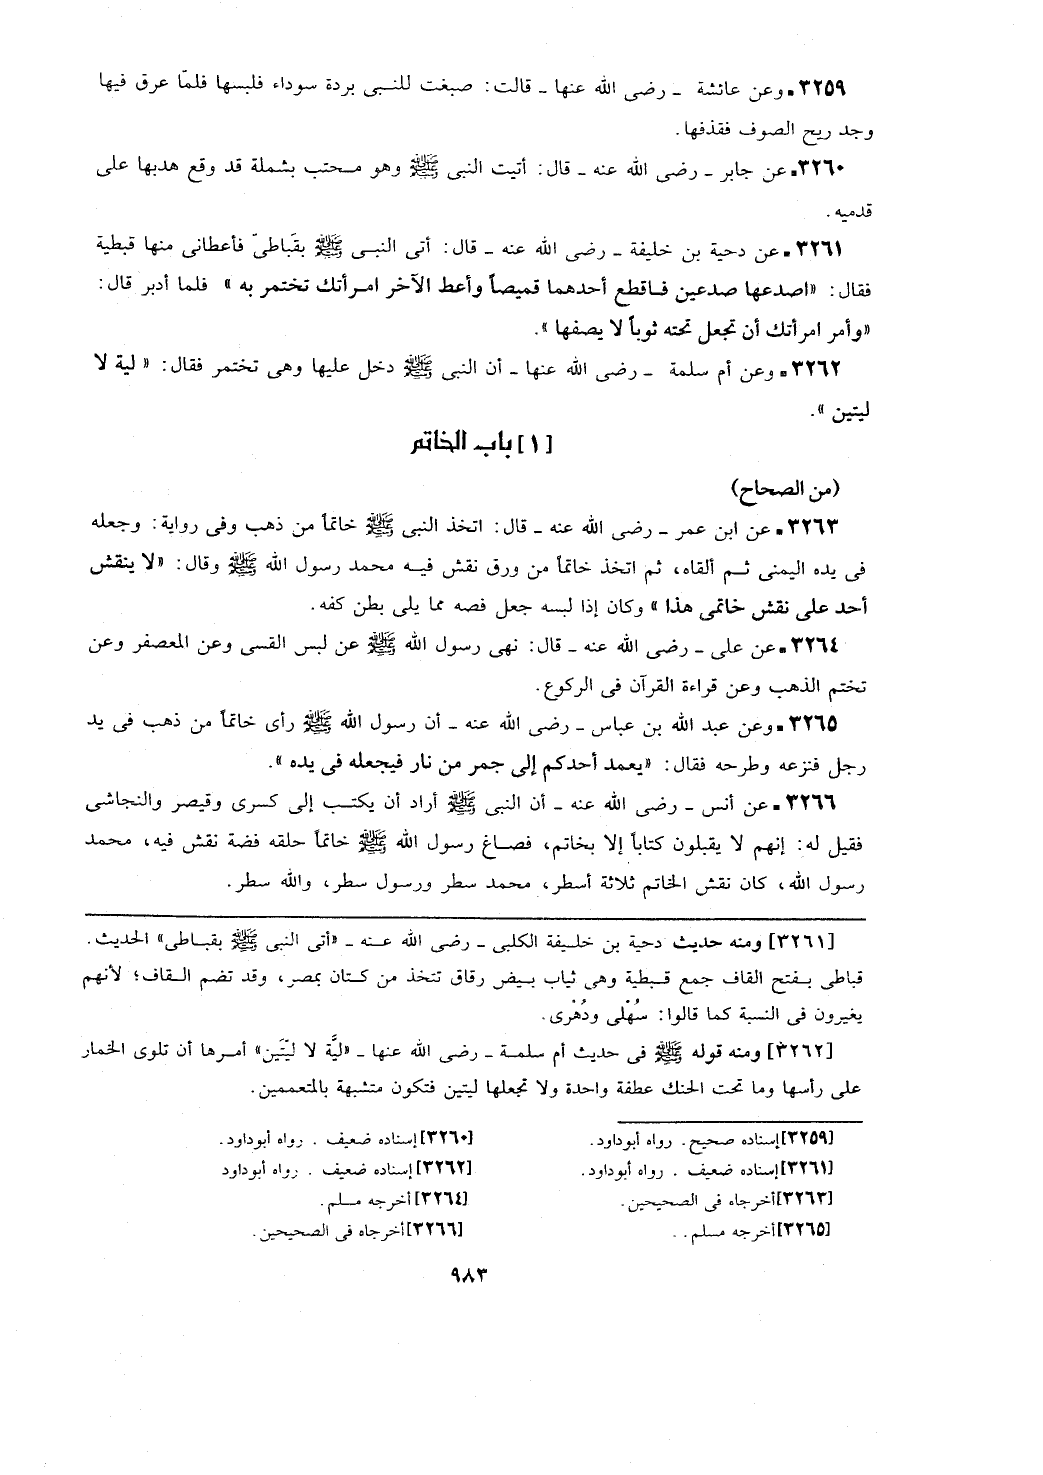 ٣٢٥٩ـ وعن عائشة ـ رضى الله عنها ـ قالت: صبغت للنبى بردة سوداء فلبسها فلمّا عرق فيها
وجد ريح الصوف فقذفها.
٣٢٦٠ـ عن جابر ـ رضى الله عنه ـ قال: أتيت النبى ﷺ وهو محتب بشملة قد وقع هدبها على
قدميه.
٣٢٦١ـ عن دحية بن خليفة ـ رضى الله عنه ـ قال: أتى النبى ﷺ بقَباطىّ فأعطانى منها قبطية
فقال: «اصدعها صدعين فاقطع أحدهما قميصاً وأعط الآخر امرأتك تختمر به» فلما أدبر قال:
«وأمر امرأتك أن تجعل تحته ثوباً لا يصفها».
٣٢٦٢ـ وعن أم سلمة ـ رضى الله عنها ـ أن النبى ﷺ دخل عليها وهى تختمر فقال: «لية لا
ليتين».
[١] باب الخاتم
(من الصحاح)
٣٢٦٣ـ عن ابن عمر ـ رضى الله عنه ـ قال: اتخذ النبى ﷺ خاتماً من ذهب وفى رواية: وجعله
فى يده اليمنى ثم ألقاه، ثم اتخذ خاتماً من ورق نقش فيه محمد رسول الله ﷺ وقال: «لا ينقش
أحد على نقش خاتمى هذا» وكان إذا لبسه جعل فصه مما يلى بطن كفه.
٣٢٦٤ـ عن على ـ رضى الله عنه ـ قال: نهى رسول الله ﷺ عن لبس القسى وعن المعصفر وعن
تختم الذهب وعن قراءة القرآن فى الركوع.
٣٢٦٥ـ وعن عبد الله بن عباس ـ رضى الله عنه ـ أن رسول الله ﷺ رأى خاتماً من ذهب فى يد
رجل فنزعه وطرحه فقال: «يعمد أحدكم إلى جمر من نار فيجعله فى يده».
٣٢٦٦ـ عن أنس ـ رضى الله عنه ـ أن النبى ﷺ أراد أن يكتب إلى كسرى وقيصر والنجاشى
فقيل له: إنهم لا يقبلون كتاباً إلا بخاتم، فصاغ رسول الله ﷺ خاتماً حلقه فضة نقش فيه، محمد
رسول الله، كان نقش الخاتم ثلاثة أسطر، محمد سطر ورسول سطر، والله سطر.
[٣٢٦١] ومنه حديث دحية بن خليفة الكلبى ـ رضى الله عنه ـ «أتى النبى ﷺ بقباطى» الحديث.
قباطى بفتح القاف جمع قبطية وهى ثياب بيض رقاق تتخذ من كتان بمصر، وقد تضم القاف؛ لأنهم
يغيرون فى النسبة كما قالوا: سُهْلى ودُهْرى.
[٣٢٦٢] ومنه قوله ﷺ فى حديث أم سلمة ـ رضى الله عنها ـ «ليَّة لا ليَّتين» أمرها أن تلوى الخمار
على رأسها وما تحت الحنك عطفة واحدة ولا تجعلها ليتين فتكون متشبهة بالمتعممين.
[٣٢٥٩] إسناده صحيح. رواه أبوداود. [٣٢٦٠] إسناده ضعيف. رواه أبوداود.
[٣٢٦١] إسناده ضعيف. رواه أبوداود. [٣٢٦٢] إسناده ضعيف. رواه أبوداود
[٣٢٦٣] أخرجاه فى الصحيحين. [٣٢٦٤] أخرجه مسلم.
[٣٢٦٥] أخرجه مسلم. [٣٢٦٦] أخرجاه فى الصحيحين.
٩٨٣